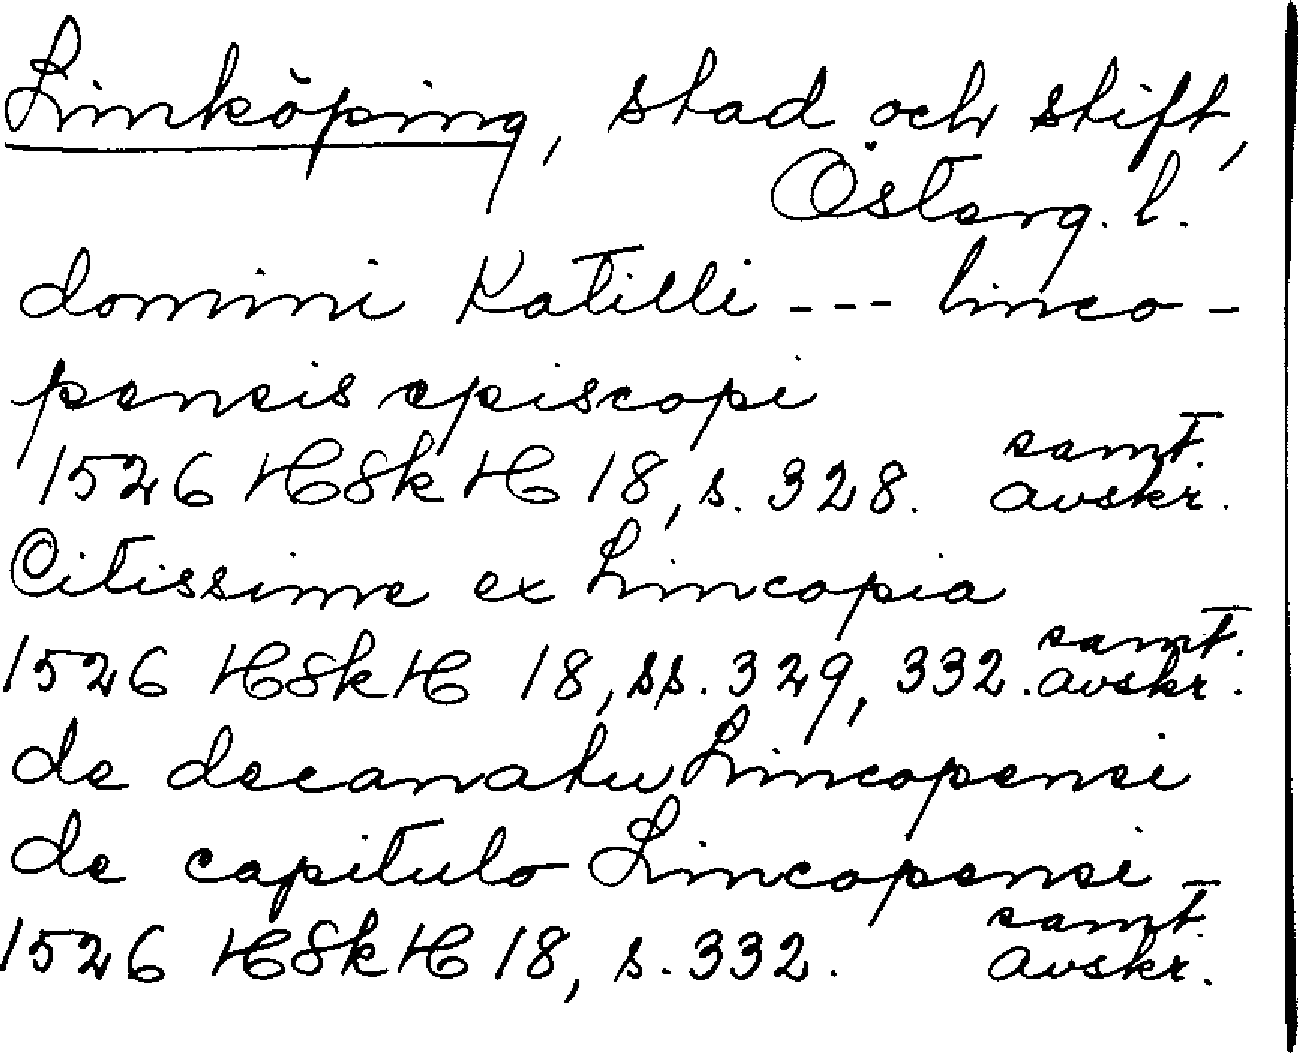 Linköping, stad och stift,
Österg. l.
domini Katilli --- linco-
pensis episcopi
1526 HSkH 18, s. 328. samt. avskr.
Citissime ex Lincopia
1526 HSkH 18, ss. 329, 332. samt. avskr.
de decanatu Lincopensi
de capitulo Lincopensi -
1526 HSkH 18, s. 332. samt. avskr.